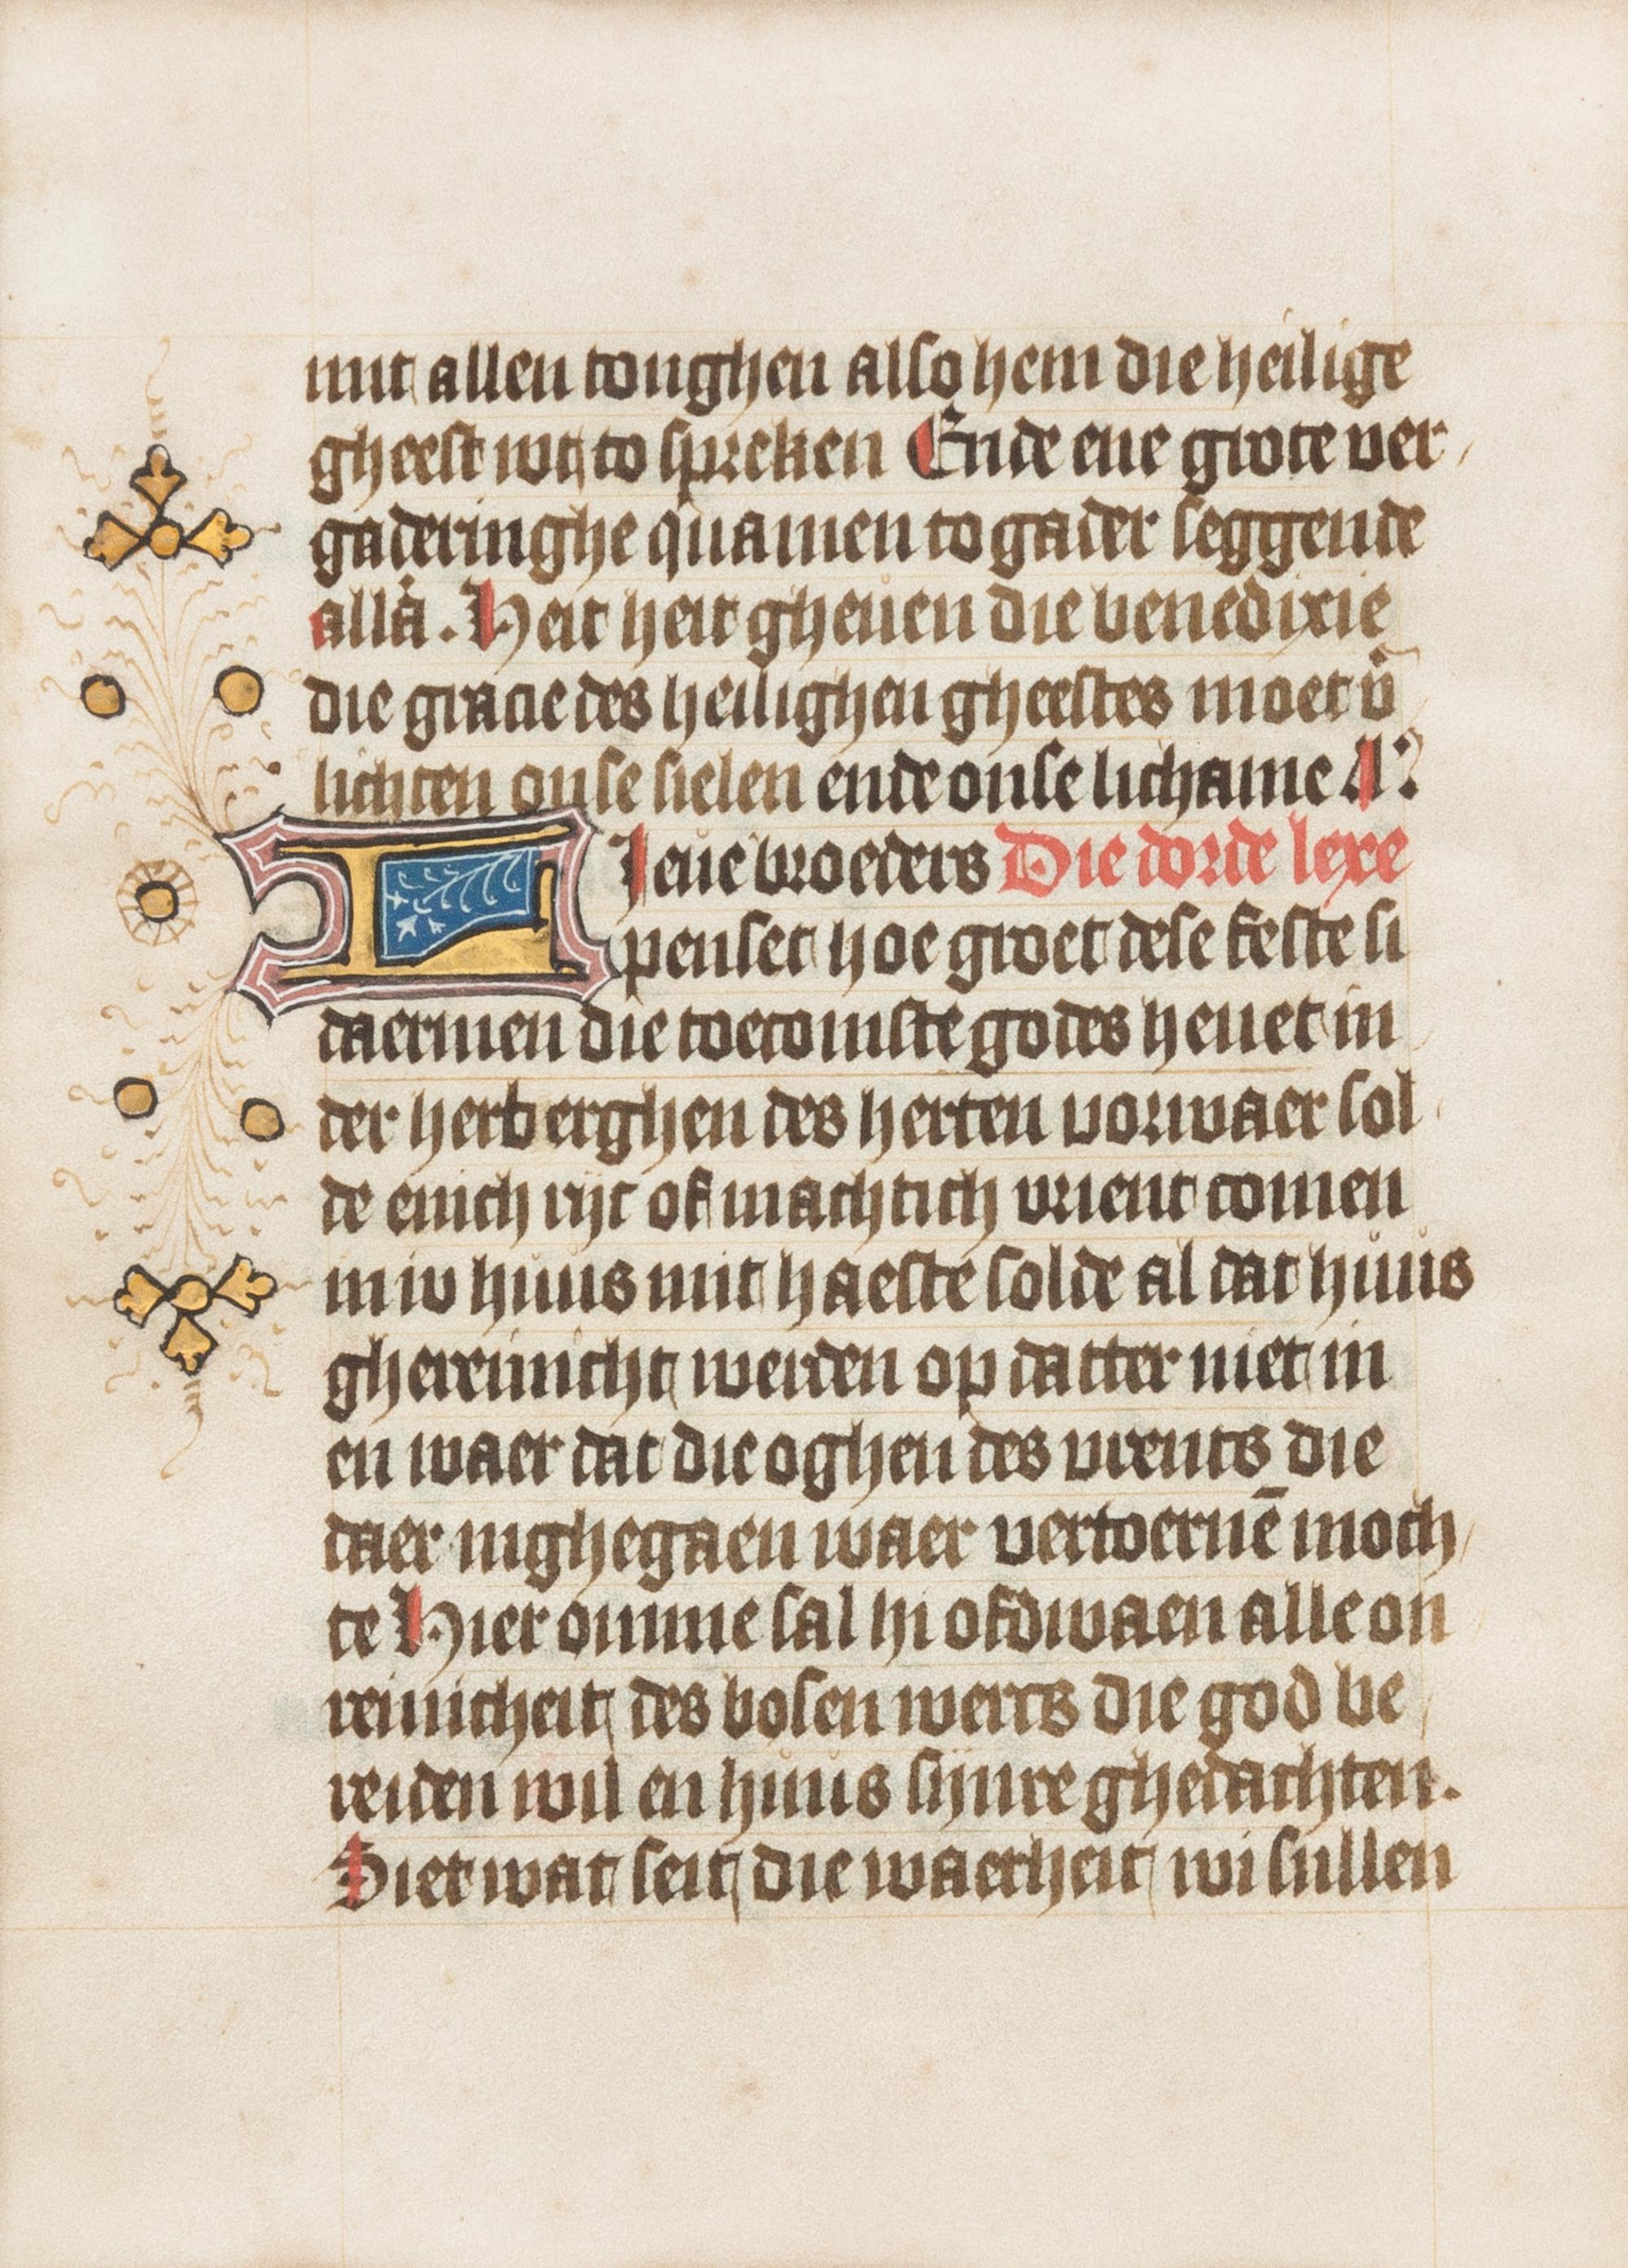 mit allen tonghen also hem die heilige
gheest wt to spreken Ende ene grote ver
gaderinghe quamen to gader seggende
alla. Heit heit gheuen die benedixie
die gracie des heilighen gheestes moet v̄
lichten onse sielen ende onse lichame A?
Lieue broeders Die dorde lexe
penset hoe groet dese feste si
daermen die toecomste godes heuet in
der herberghen des herten vorwaer sol
de enich rijc of machtich vrient comen
in iv huus mit haeste solde al dat huus
ghereinicht werden op datter niet in
en waer dat die oghen des vrents die
daer inghegaen waer vertoernē moch
te Hier omme sal hi ofdwaen alle on
reinicheit des bosen wercs die god be
reiden wil en huus sijnre ghedachten.
Siet wat seit die waerheit wi sullen